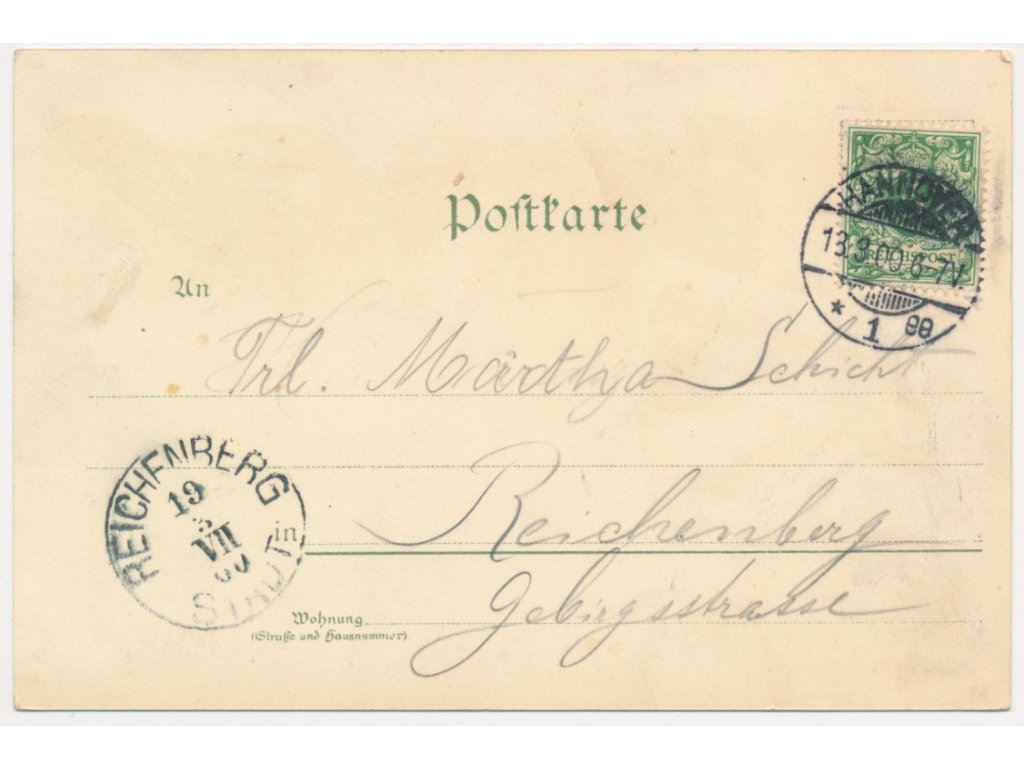 Postkarte
HANNOVER
13.3.00.6-7V.
* 1 ee
REICHSPOST
An
Frl. Märtha Schicht
REICHENBERG
19
3
VII
00
STADT
in
Reichenberg
Gebirgsstrasse
Wohnung
(Straße und Hausnummer)